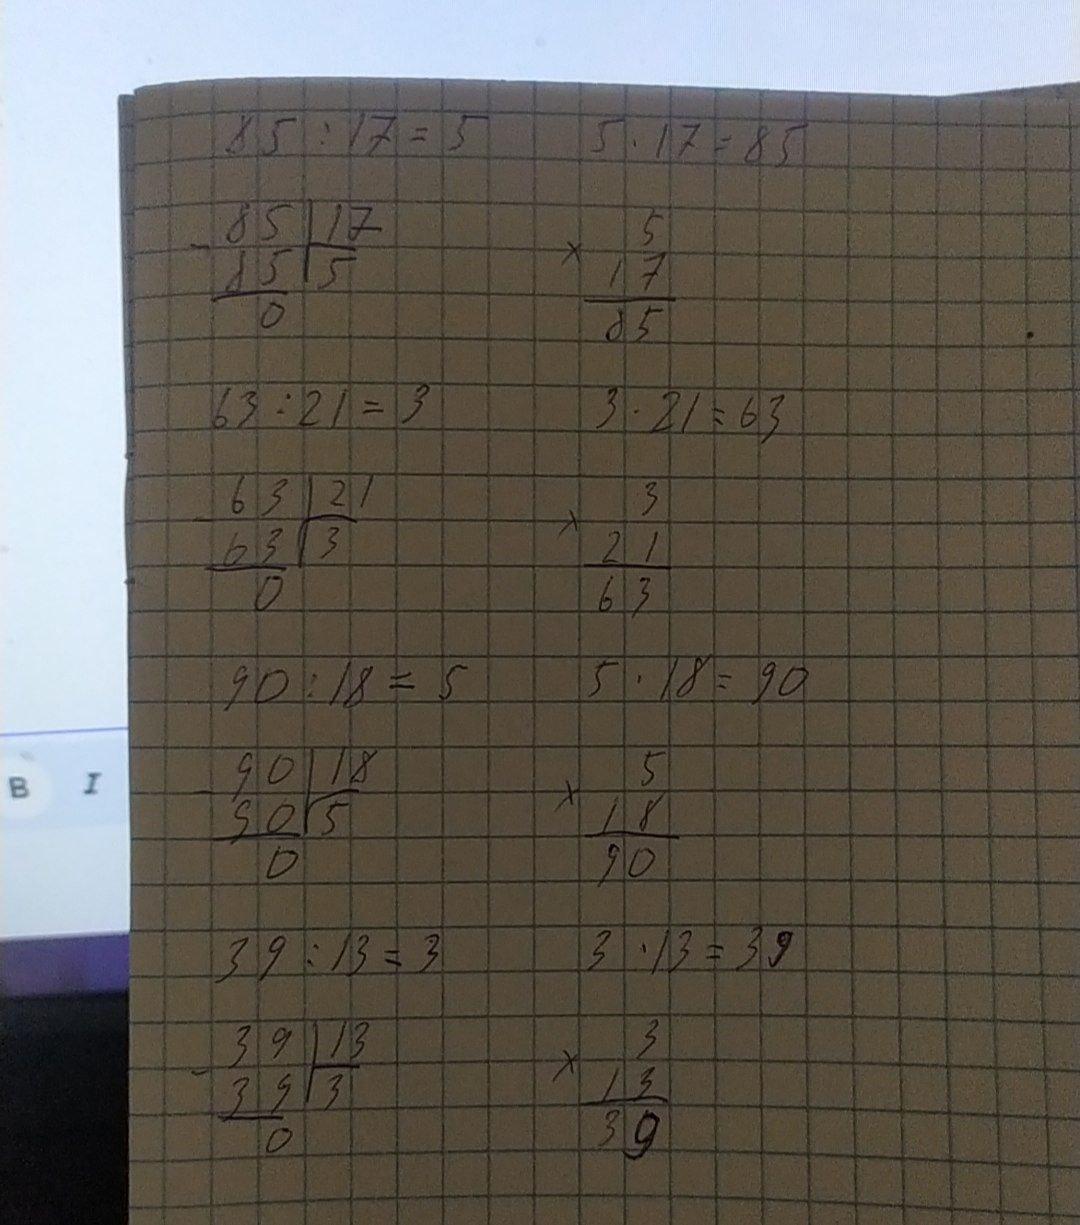 85 : 17 = 5 5 · 17 = 85
- 85 | 17 × 5
85 | 5 17
0 85
63 : 21 = 3 3 · 21 = 63
- 63 | 21 × 3
63 | 3 21
0 63
90 : 18 = 5 5 · 18 = 90
- 90 | 18 × 5
90 | 5 18
0 90
39 : 13 = 3 3 · 13 = 39
- 39 | 13 × 3
39 | 3 13
0 39
B I